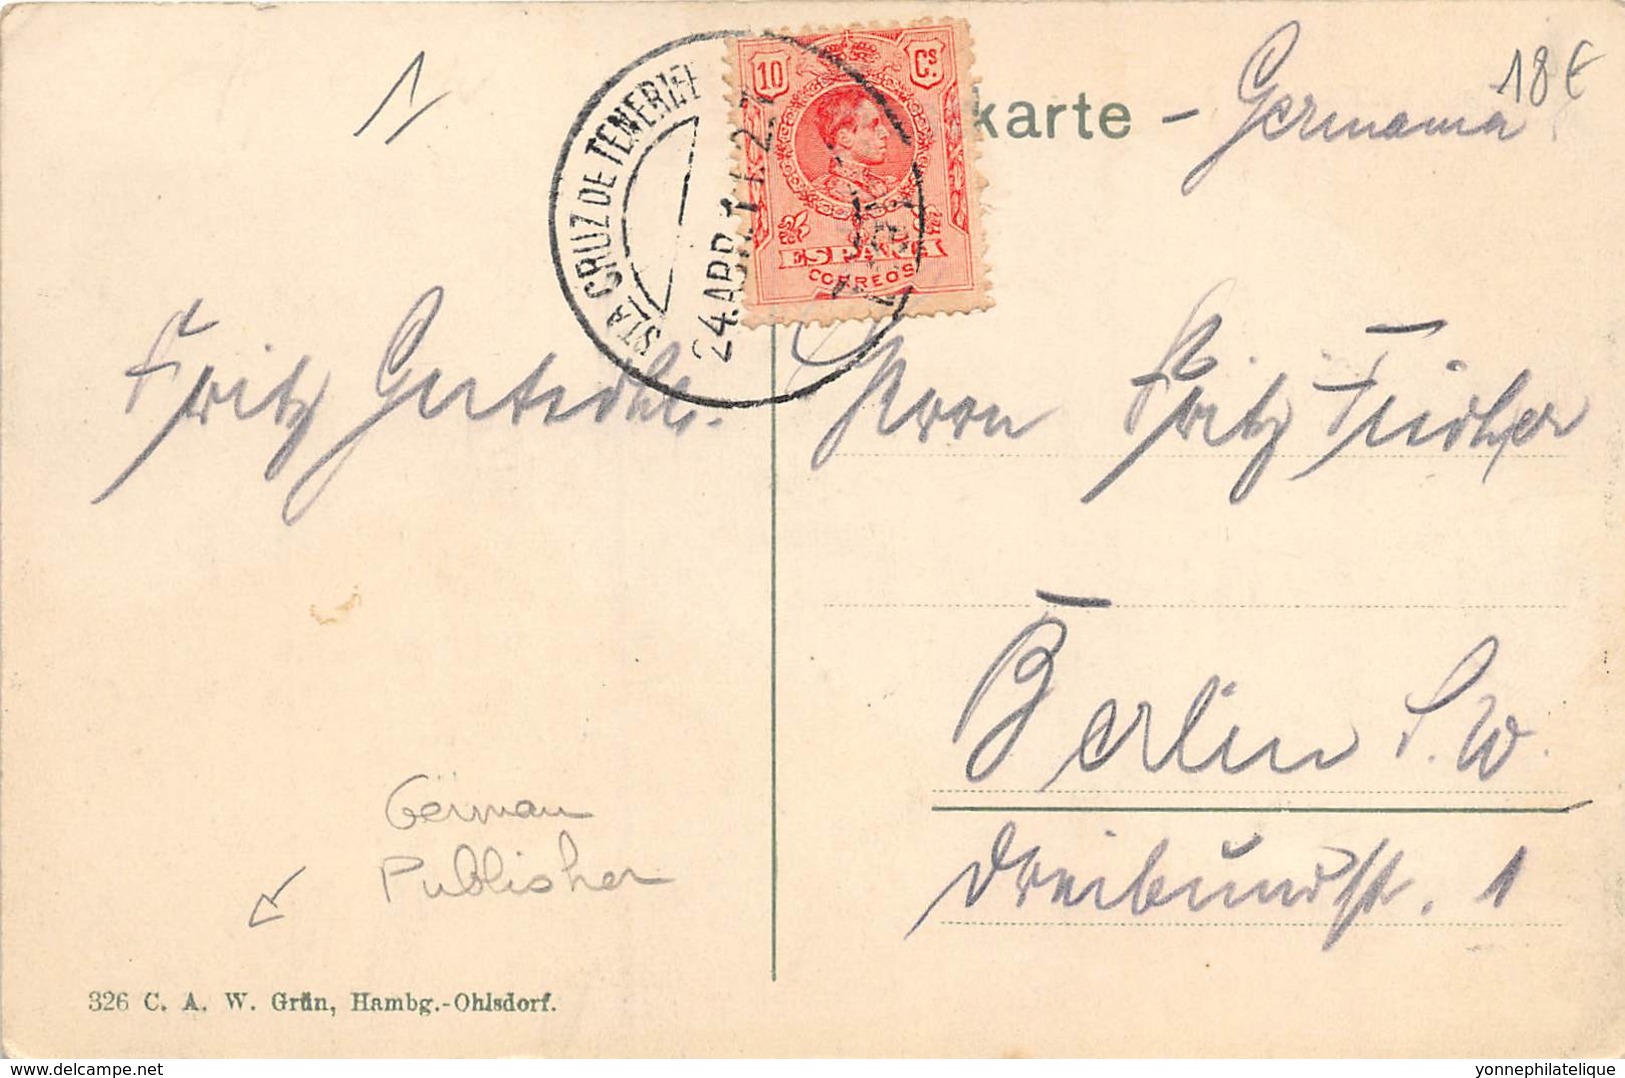 1
18 €
karte – Germania
STA CRUZ DE TENERIFE
24.ABR.11.2.T
10 Cs.
ESPAÑA
CORREOS
Fritz
Herrn Fritz
Berlin S.W.
Dreibundstr. 1
German
Publisher
326 C. A. W. Grün, Hambg.-Ohlsdorf.
www.yonnephilatelique